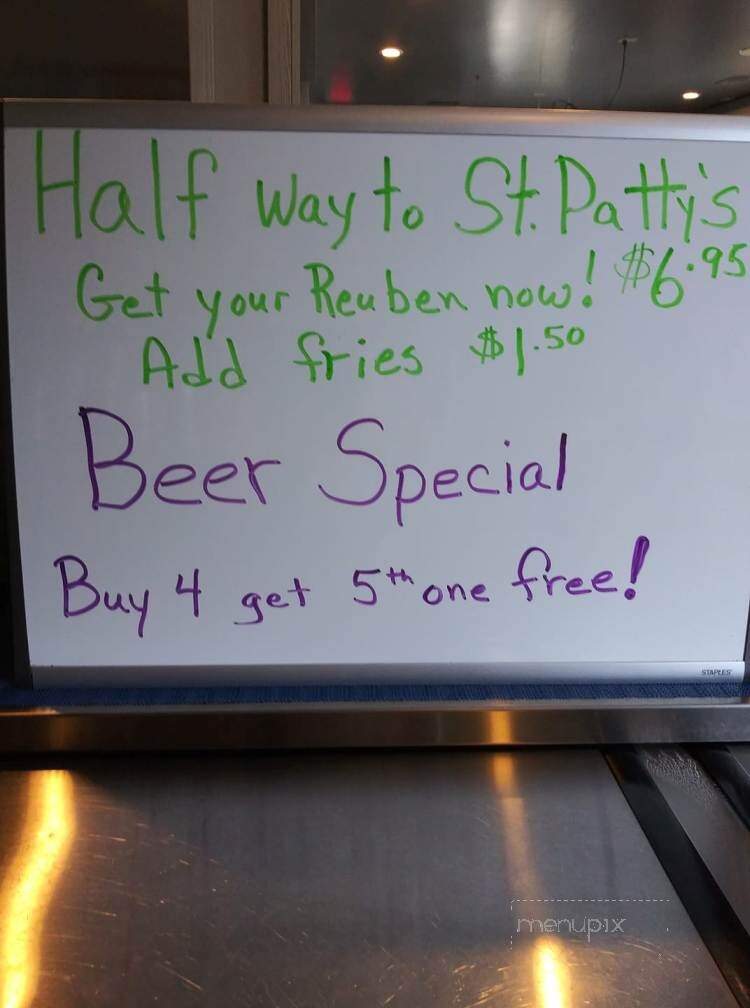 Half way to St. Patty's
Get your Reuben now! $6.95
Add fries $1.50
Beer Special
Buy 4 get 5th one free!
STAPLES
menupix